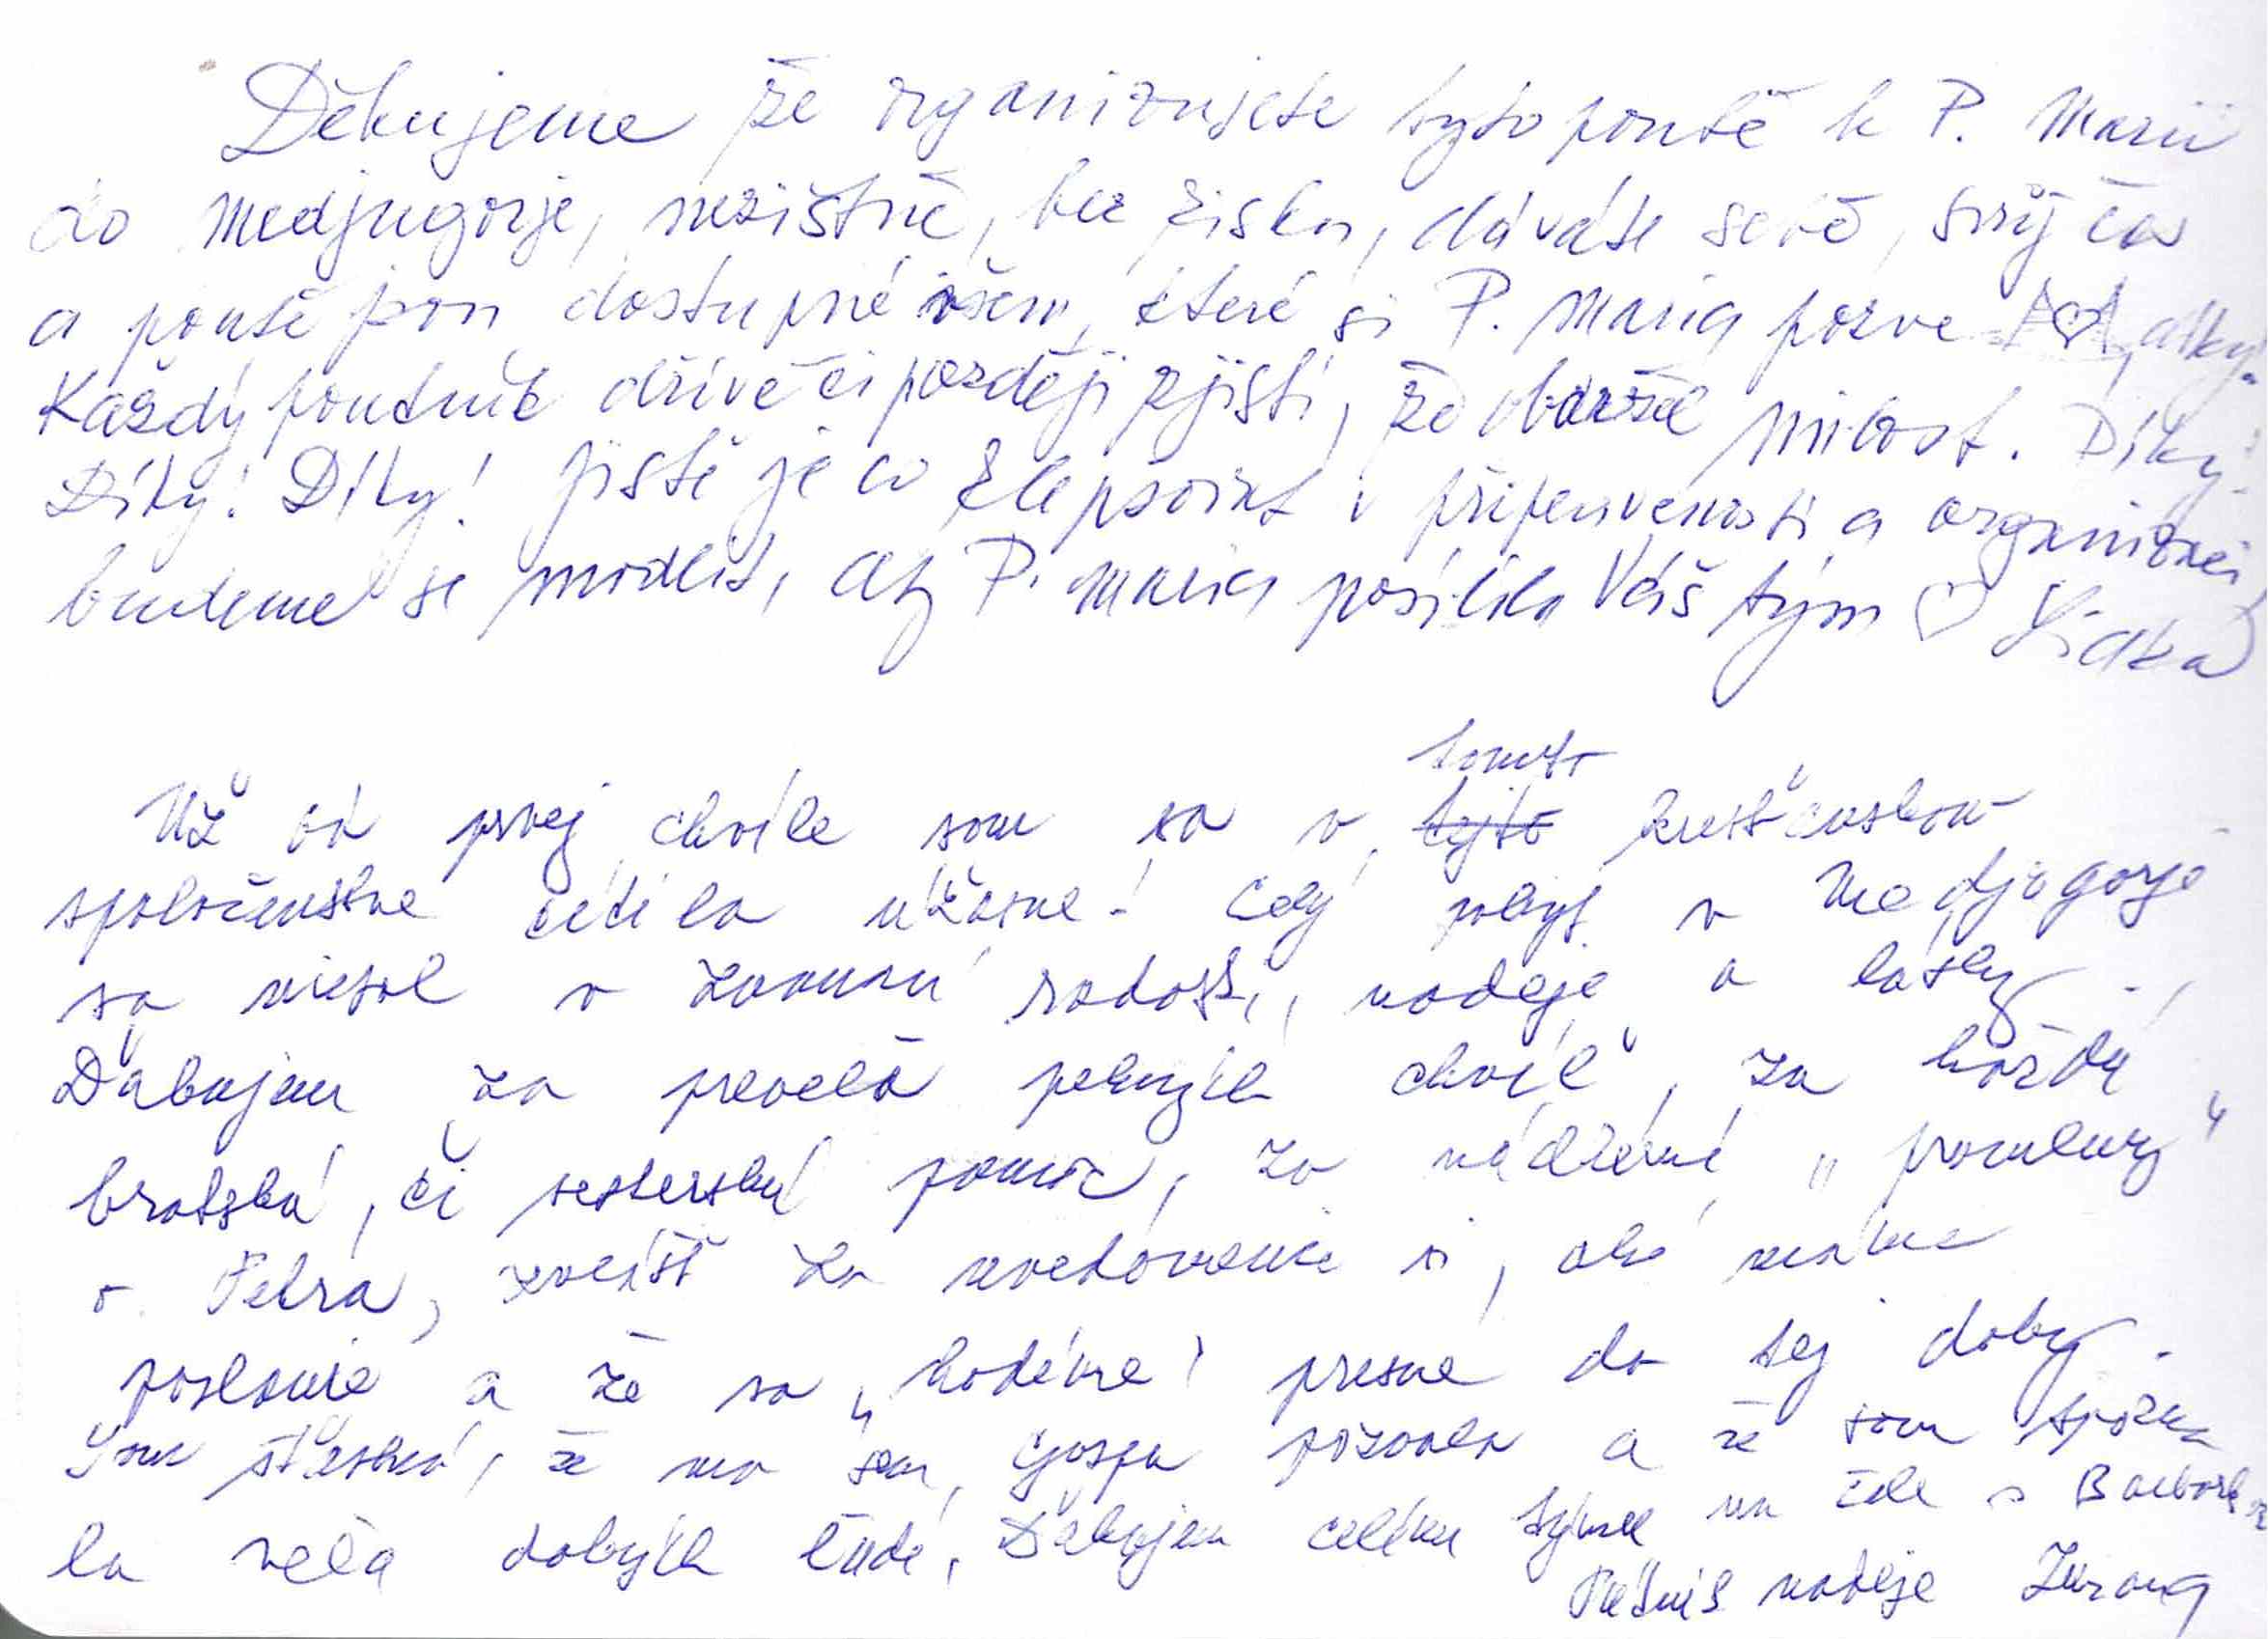 Děkujeme že organizujete tyto poutě k P. Marii
do Medjugorje, nezištně, bez zisku, dáváte sebe, svůj čas
a poutě jsou dostupné všem, které si P. Maria pozve, díky!
Každý poutník dříve či později zjistí, že obdržel milost. Díky!
Díky! Díky! Jistě je co zlepšovat v připravenosti a organizaci
budeme se modlit, aby P. Maria posílila Váš tým ♡ Lidka
tomto
Už od prvej chvíle som sa v tejto kresťanskom
spoločenstve cítila úžasne! Celý pobyt v Medjugorje
sa niesol v znamení radosti, nádeje a lásky.
Ďakujem za preveľa pekných chvíľ, za každú
bratskú, či sesterskú pomoc, za nádherné „promluvy“
o. Petra, zvlášť za uvedomenie si, aké máme
poslanie a že sa „hodíme“ presne do tej doby.
Som šťastná, že ma sem Gospa pozvala a že som spozna
la veľa dobrých ľudí. Ďakujem celému týmu na čele s Barbork
Pútnik nádeje Zuzana